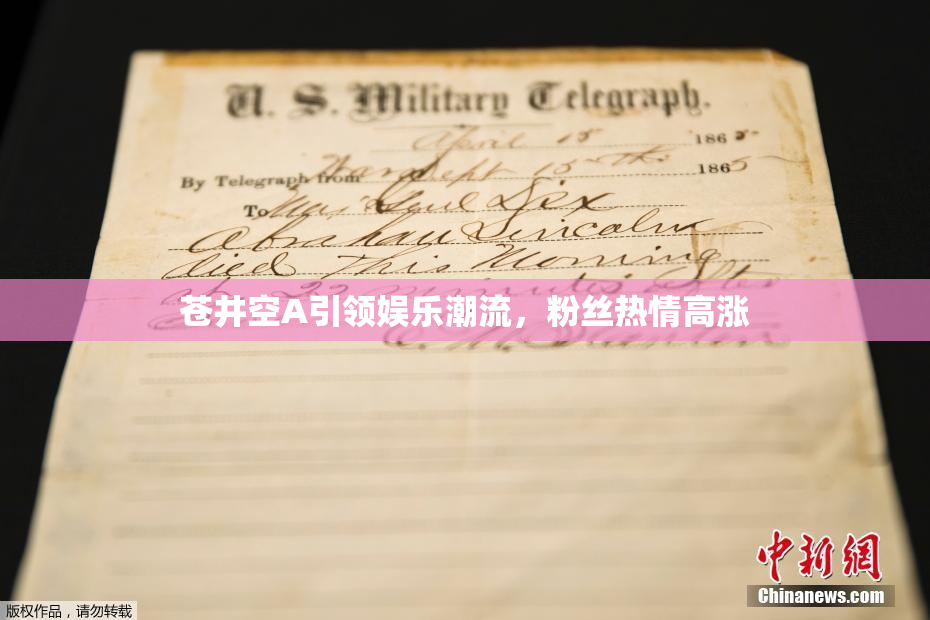 U. S. Military Telegraph.
April 15 1865
By Telegraph from War Dept 15th 1865
To Maj Genl Dix
Abraham Lincoln
died This Morning
at 22 minutes after
苍井空A引领娱乐潮流，粉丝热情高涨
E. M. Stanton
中新网
Chinanews.com
版权作品，请勿转载